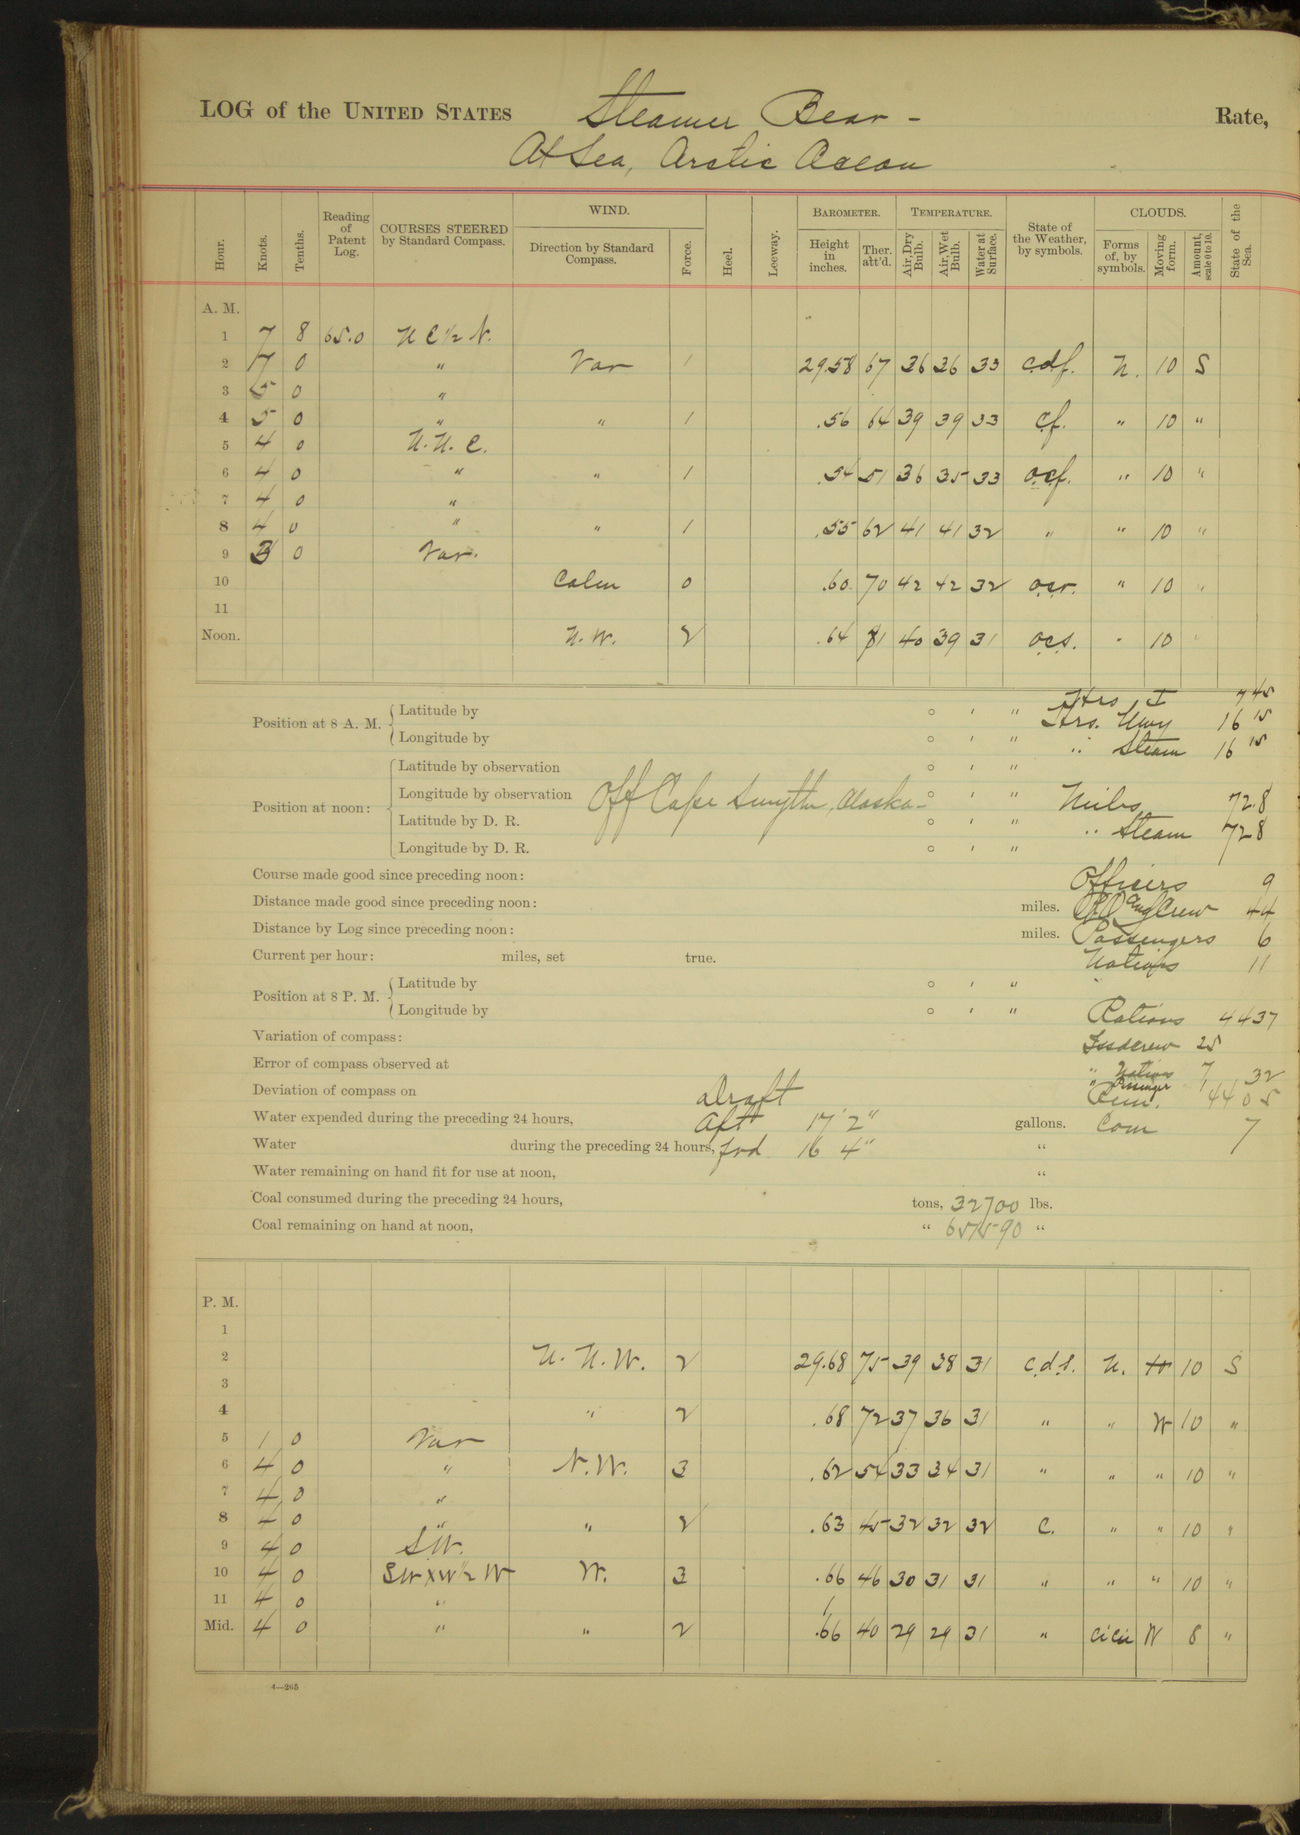 LOG of the UNITED STATES Steamer Bear - Rate,
At Sea, Arctic Ocean
Hour. Knots. Tenths. Reading of Patent Log. COURSES STEERED by Standard Compass. WIND. Direction by Standard Compass. Force. Heel. Leeway. BAROMETER. Height in inches. Ther. att'd. TEMPERATURE. Air, Dry Bulb. Air, Wet Bulb. Water at Surface. State of the Weather, by symbols. CLOUDS. Forms of, by symbols. Moving form. Amount, scale 0 to 10. State of the Sea.
A. M.
1 7 8 65.0 N E ½ N.
2 7 0 " Var 1 29.58 67 36 36 33 c.d.f. N. 10 S
3 5 0 "
4 5 0 " " 1 .56 64 39 39 33 c.f. " 10 "
5 4 0 N. N. E.
6 4 0 " " 1 .54 51 36 35 33 o.c.f. " 10 "
7 4 0 "
8 4 0 " " 1 .55 62 41 41 32 " " 10 "
9 3 0 Var.
10 Calm 0 .60 70 42 42 32 o.c.r. " 10 "
11
Noon. N. W. 2 .64 81 40 39 31 o.c.s. " 10 "
Hrs I 7 45
Position at 8 A. M. Latitude by ° ' " Hrs. Uwy 16 15
Longitude by ° ' " " Steam 16 15
Position at noon: Latitude by observation ° ' "
Longitude by observation Off Cape Smyth, Alaska - ° ' " Miles 72.8
Latitude by D. R. ° ' " " Steam 72 8
Longitude by D. R. ° ' "
Course made good since preceding noon: Officers 9
Distance made good since preceding noon: miles. P.O. and Crew 44
Distance by Log since preceding noon: miles. Passengers 6
Current per hour: miles, set true. Natives 11
Position at 8 P. M. Latitude by ° ' "
Longitude by ° ' " Rations 4437
Variation of compass: Issd crew 25
Error of compass observed at " Natives Passenger 7 32
Deviation of compass on Draft Rem. 4405
Water expended during the preceding 24 hours, Aft 17' 2" gallons. Com 7
Water during the preceding 24 hours, fwd 16 4" "
Water remaining on hand fit for use at noon, "
Coal consumed during the preceding 24 hours, tons, 32700 lbs.
Coal remaining on hand at noon, " 657590 "
P. M.
1
2 N. N. W. 2 29.68 75 39 38 31 c.d.s. N. 10 10 S
3
4 " 2 .68 72 37 36 31 " " W 10 "
5 1 0 Var
6 4 0 " N. W. 3 .62 54 33 34 31 " " " 10 "
7 4 0 "
8 4 0 " " 2 .63 45 32 32 32 c. " " 10 "
9 4 0 S W.
10 4 0 SW x W ½ W W. 3 .66 46 30 31 31 " " " 10 "
11 4 0 "
Mid. 4 0 " " 2 .66 40 29 29 31 " W 8 "
4—265